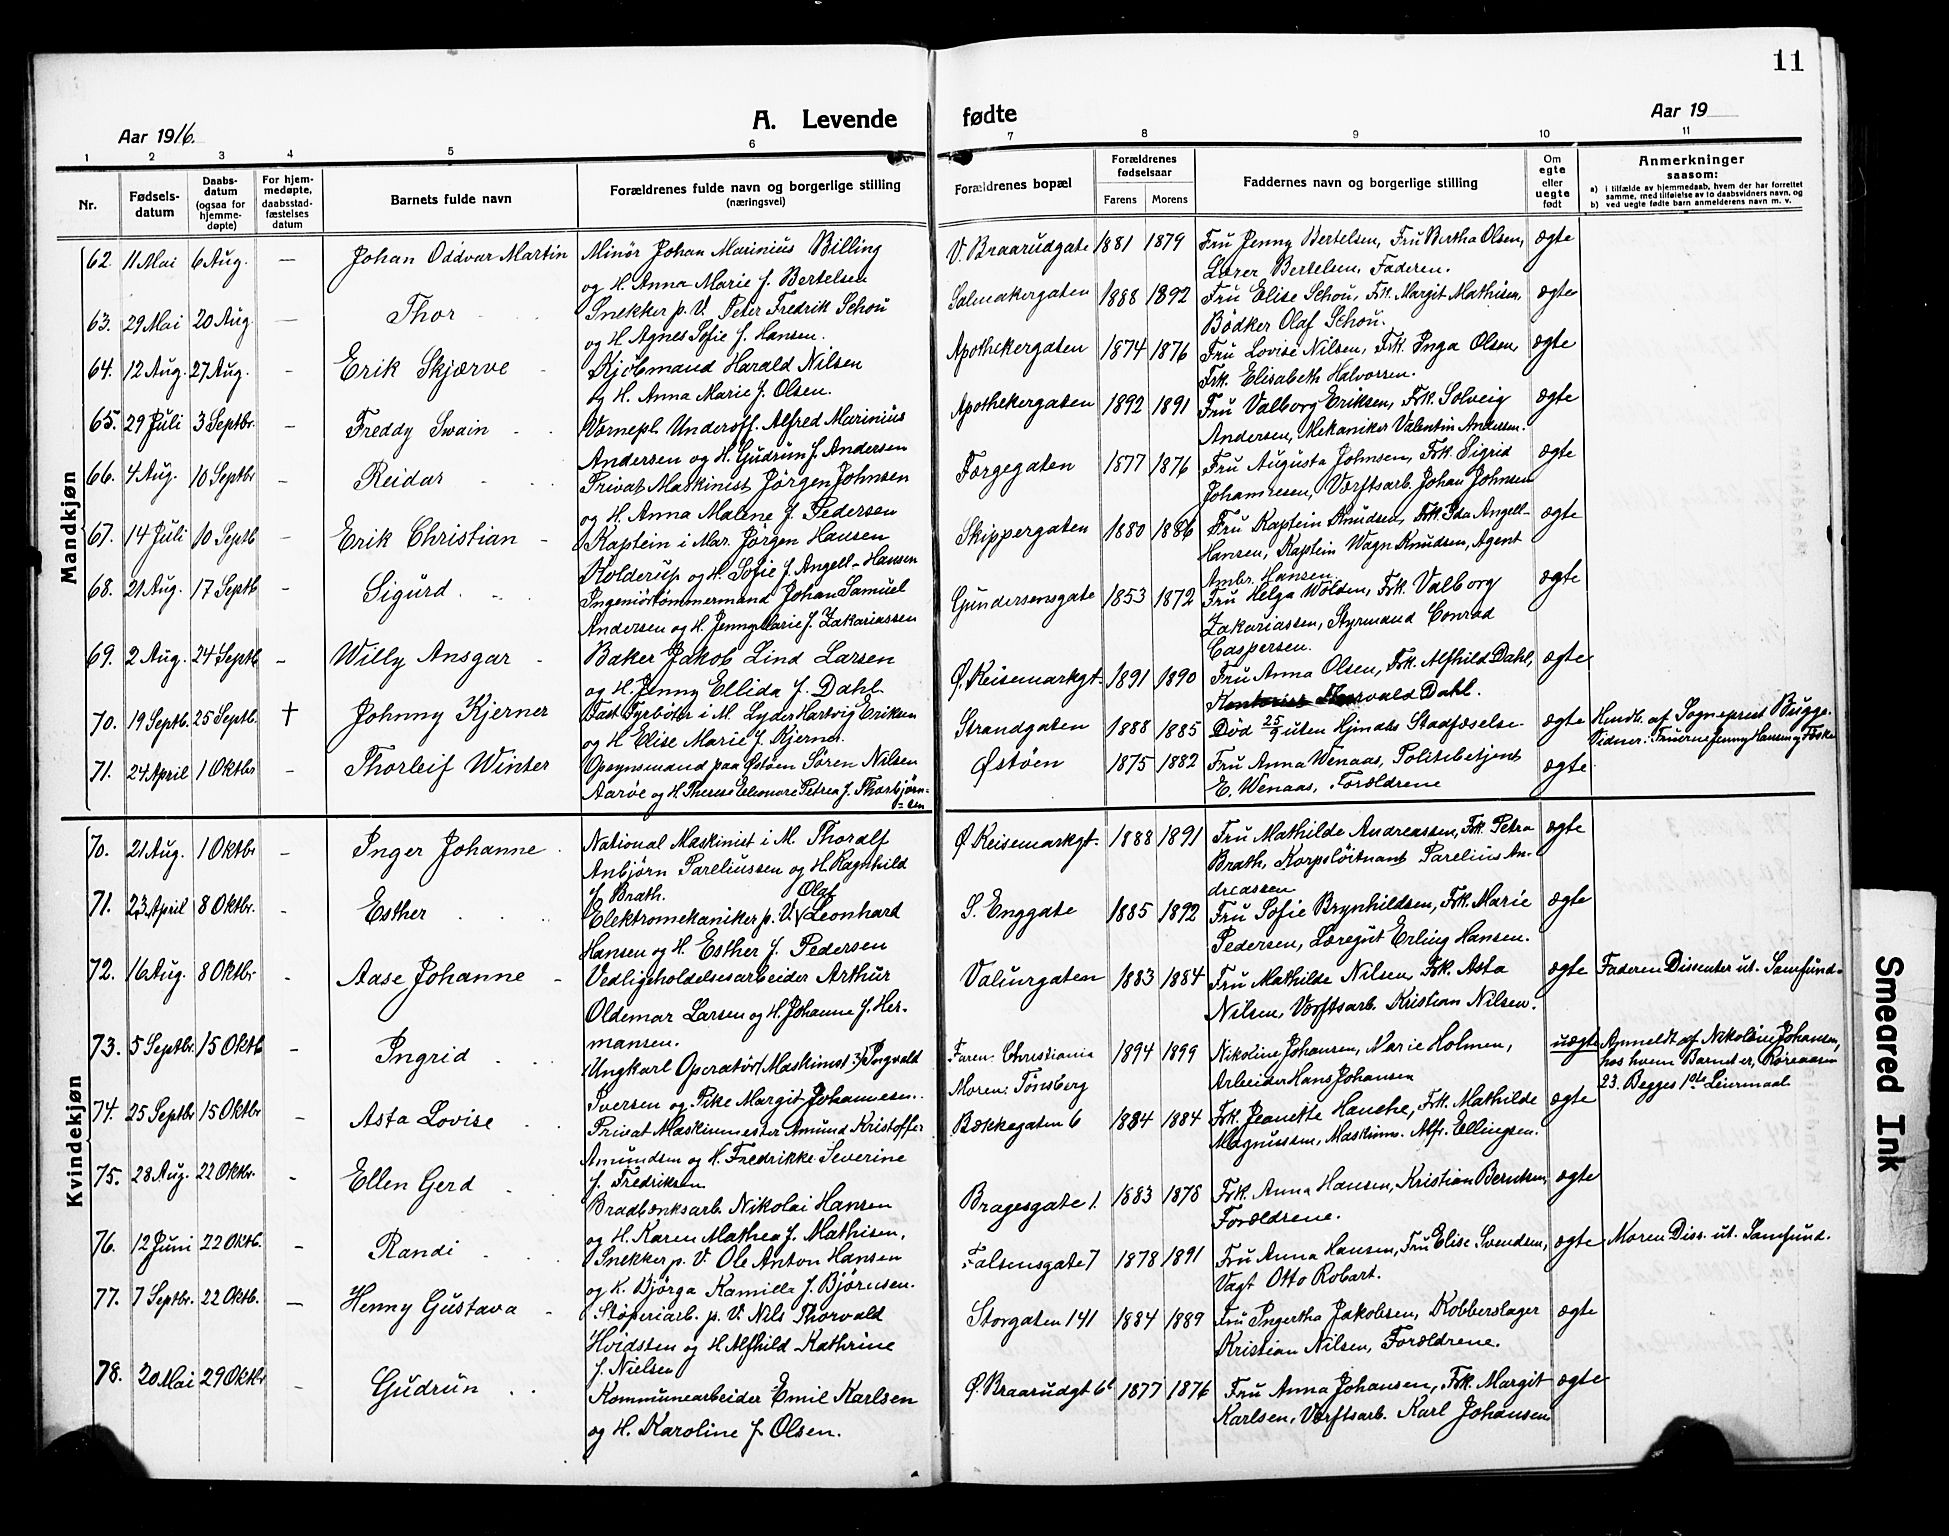 11
Aar 1916.
A. Levende
fødte
Aar 19
1 2 3 4 5 6 7 8 9 10 11
Nr.
Fødsels-
datum
Daabs-
datum
(ogsaa for
hjemme-
døpte)
For hjem-
medøpte,
daabsstad-
fæstelses
datum
Barnets fulde navn
Forældrenes fulde navn og borgerlige stilling
(næringsvei)
Forældrenes bopæl
Forældrenes
fødselsaar
Farens Morens
Faddernes navn og borgerlige stilling
Om
egte
eller
uegte
født
Anmerkninger
saasom:
a) i tilfælde av hjemmedaab, hvem der har forrettet
samme, med tilføielse av to daabsvidners navn, og
b) ved uegte fødte barn anmelderens navn m. v.
Mandkjøn
62. 11 Mai 6 Aug. — Johan Oddvar Martin Minør Johan Marinius Billing V. Braarudgate 1881 1879 Fru Jenny Bertelsen, Fru Bertha Olsen, ægte
og H. Anna Marie f. Bertelsen Lærer Bertelsen, Faderen.
63. 29 Mai 20 Aug. — Thor Snekker p. V. Peter Fredrik Schou Salmakergaten 1888 1892 Fru Elise Schou, Frk. Margit Mathisen, ægte
og H. Agnes Sofie f. Hansen. Bödker Olaf Schou.
64. 12 Aug. 27 Aug. - Erik Skjærve Kjöbmand Harald Nilsen Apothekergaten 1874 1876 Fru Lovise Nilsen, Frk. Inga Olsen, ægte
og H. Anna Marie f. Olsen. Frk. Elisabeth Halvorsen.
65. 29 Juli 3 Septbr. - Freddy Swain Værnepl. Underoff. Alfred Marinius Apothekergaten 1892 1891 Fru Valborg Eriksen, Frk. Solveig ægte
Andersen og H. Gudrun f. Andersen Andersen, Mekaniker Valentin Andersen.
66. 4 Aug. 10 Septbr - Reidar Privat Maskinist Jörgen Johnsen Færgegaten 1877 1876 Fru Augusta Johnsen, Frk. Sigrid ægte
og H. Anna Malene f. Pedersen Johannesen, Værftsarb. Johan Johnsen
67. 14 Juli 10 Septb - Erik Christian Kaptein i Mar. Jörgen Hansen Skippergaten 1880 1886 Fru Kaptein Knudsen, Frk. Ida Angell- ægte
Holderup og H. Sofie f. Angell-Hansen Hansen, Kaptein Wagn Knudsen, Agent
Ambr. Hansen.
68. 21 Aug. 17 Septb - Sigurd Ingeniörtömmermand Johan Samuel Gundersensgate 1853 1872 Fru Helga Wolden, Frk. Valborg ægte
Andersen og H. Jenny Marie f. Zakariassen Zakariassen, Styrmand Conrad
Caspersen.
69. 2 Aug. 24 Septb - Willy Ansgar Baker Jakob Lind Larsen Ø. Keisemarkgt. 1891 1890 Fru Anna Olsen, Frk. Alfhild Dahl, ægte
og H. Jenny Ellida f. Dahl Kontorist Dahl.
70. 19 Septb. 25 Septb. † Johnny Kjerner Fast Fyrböter i M. Lyder Hartvig Eriksen Strandgaten 1888 1885 Död 25/9 uten Hjmdbs Stadfæstelse ægte Hmdb. af Sogneprest Bugge.
og H. Elise Marie f. Kjerner. Vidner: Fruerne Jenny Hansen og
71. 24 April 1 Oktbr - Thorleif Winter Opsynsmand paa Østöen Sören Nilsen Østöen 1875 1882 Fru Anna Wenaas, Politibetjent ægte
Aaröe og H. Therese Eleonore Petrea f. Thorbjörn- E. Wenaas, Forældrene
sen
Kvindekjøn
70. 21 Aug. 1 Oktbr - Inger Johanne National Maskinist i M. Thoralf Ø. Keisemarkgt. 1888 1891 Fru Mathilde Andreassen, Frk. Petra ægte
Anbjörn Pareliussen og H. Ragnhild Brath, Korpslöitnant Parelius An-
f. Brath. dreassen
71. 23 April 8 Oktbr. - Esther Elektromekaniker p. V. Olaf Leonhard S. Enggate 1885 1892 Fru Sofie Brynhildsen, Frk. Marie ægte
Hansen og H. Esther f. Pedersen Pedersen, Læregut Erling Hansen.
72. 16 Aug. 8 Oktbr - Aase Johanne Vedligeholdelsesarbeider Arthur Valurgaten 1883 1884 Fru Mathilde Nilsen, Frk. Asta ægte Faderen Dissenter ut. Samfund.
Oldemar Larsen og H. Johanne f. Her- Nilsen, Værftsarb. Kristian Nilsen.
mansen.
73. 5 Septbr. 15 Oktb - Ingrid Ungkarl Operatör (Maskinist 3) Ingvald Faren: Christiania 1894 1899 Nikoline Johansen, Marie Holmen, uægte Anmeldt af Nikoline Johansen,
Iversen og Pike Margit Johannesen. Moren: Tönsberg Arbeider Hans Johansen hos hvem Barnet er,
23. Begges 1ste Leiermaal
74. 25 Septbr 15 Oktbr - Asta Lovise Privat Maskinmester Amund Kristoffer Bækkegaten 6 1884 1884 Frk. Jeanette Hanche, Frk. Mathilde ægte
Amundsen og H. Fredrikke Severine Magnussen, Maskinm. Alfr. Ellingsen.
f. Fredriksen
75. 28 Aug. 22 Oktbr. - Ellen Gerd Bradbænksarb. Nikolai Hansen Bragesgate 1. 1883 1878 Frk. Anna Hansen, Kristian Berntsen, ægte
og H. Karen Mathea f. Mathisen. Forældrene.
76. 12 Juni 22 Oktb. - Randi Snekker p. V. Ole Anton Hansen Falsensgate 7 1878 1891 Fru Anna Hansen, Fru Elise Svendsen, ægte Moren Diss. ut. Samfund.
og K. Bjørga Kamilla f. Bjørnsen. Vagt Otto Robart.
77. 7 Septbr. 22 Oktb. — Henny Gustava Støperiarb. p. V. Nils Thorvald Storgaten 141 1884 1889 Fru Ingertha Jakobsen, Kobberslager ægte
Hvidsten og H. Alfhild Kathrine Kristian Nilsen, Forældrene.
f. Nielsen
78. 20 Mai 29 Oktbr - Gudrun Kommunearbeider Emil Karlsen Ø. Braarudgt 6b 1877 1876 Fru Anna Johansen, Frk. Margit ægte
og H. Karoline f. Olsen. Karlsen, Værftsarb. Karl Johansen
Smeared Ink